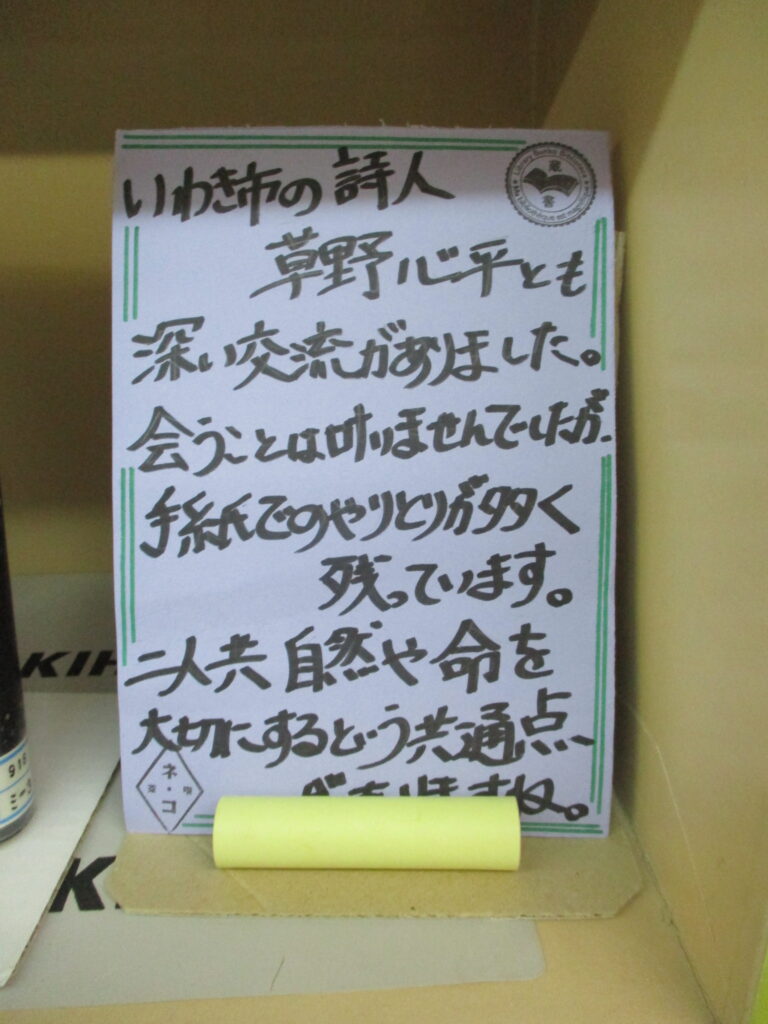 いわき市の詩人
草野心平とも
深い交流がありました。
会うことは叶いませんでしたが、
手紙でのやりとりが多く
残っています。
二人共自然や命を
大切にするという共通点、
がありますね。
蔵書
ネ・コ
KIH
KI
918
ミー